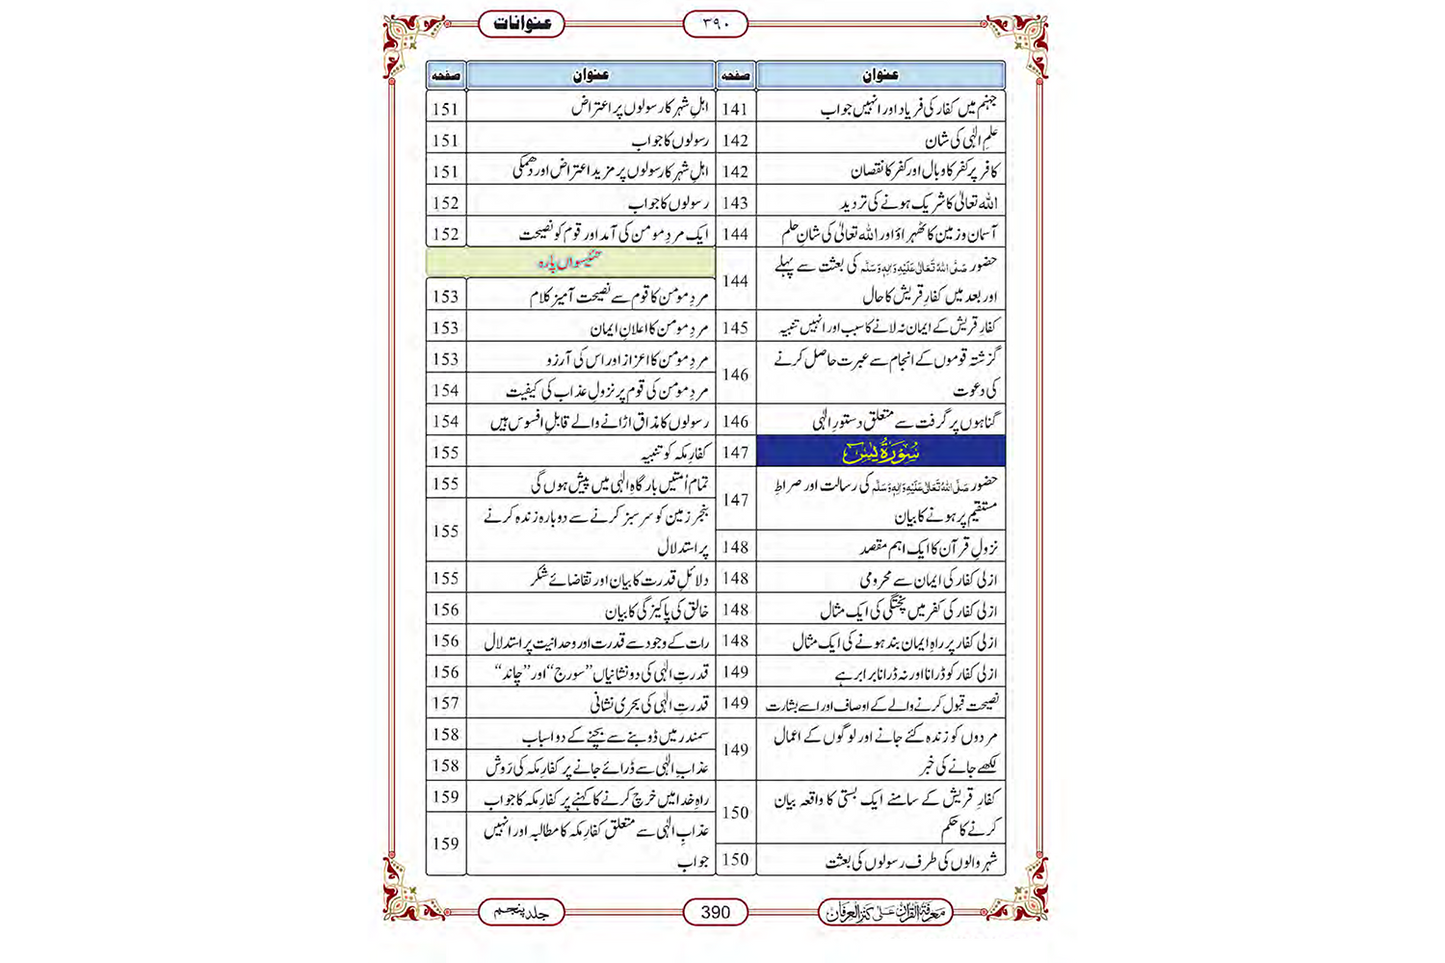 عنوانات
۳۹۰
عنوان صفحہ
جہنم میں کفار کی فریاد اور انہیں جواب 141
علمِ الٰہی کی شان 142
کافر پر کفر کا وبال اور کفر کا نقصان 142
اللہ تعالیٰ کا شریک ہونے کی تردید 143
آسمان و زمین کا ٹھہراؤ اور اللہ تعالیٰ کی شانِ حلم 144
حضور صَلَّی اللہُ تَعَالٰی عَلَیْہِ وَاٰلِہٖ وَسَلَّم کی بعثت سے پہلے
اور بعد میں کفارِ قریش کا حال 144
کفارِ قریش کے ایمان نہ لانے کا سبب اور انہیں تنبیہ 145
گزشتہ قوموں کے انجام سے عبرت حاصل کرنے
کی دعوت 146
گناہوں پر گرفت سے متعلق دستورِ الٰہی 146
سُوْرَۃُ یٰسٓ 147
حضور صَلَّی اللہُ تَعَالٰی عَلَیْہِ وَاٰلِہٖ وَسَلَّم کی رسالت اور صراطِ
مستقیم پر ہونے کا بیان 147
نزولِ قرآن کا ایک اہم مقصد 148
ازلی کفار کی ایمان سے محرومی 148
ازلی کفار کی کفر میں پختگی کی ایک مثال 148
ازلی کفار پر راہِ ایمان بند ہونے کی ایک مثال 148
ازلی کفار کو ڈرانا اور نہ ڈرانا برابر ہے 149
نصیحت قبول کرنے والے کے اوصاف اور اسے بشارت 149
مردوں کو زندہ کئے جانے اور لوگوں کے اعمال
لکھے جانے کی خبر 149
کفارِ قریش کے سامنے ایک بستی کا واقعہ بیان
کرنے کا حکم 150
شہر والوں کی طرف رسولوں کی بعثت 150
عنوان صفحہ
اہلِ شہر کا رسولوں پر اعتراض 151
رسولوں کا جواب 151
اہلِ شہر کا رسولوں پر مزید اعتراض اور دھمکی 151
رسولوں کا جواب 152
ایک مردِ مومن کی آمد اور قوم کو نصیحت 152
تئیسواں پارہ
مردِ مومن کا قوم سے نصیحت آمیز کلام 153
مردِ مومن کا اعلانِ ایمان 153
مردِ مومن کا اعزاز اور اس کی آرزو 153
مردِ مومن کی قوم پر نزولِ عذاب کی کیفیت 154
رسولوں کا مذاق اڑانے والے قابلِ افسوس ہیں 154
کفارِ مکہ کو تنبیہ 155
تمام اُمتیں بارگاہِ الٰہی میں پیش ہوں گی 155
بنجر زمین کو سرسبز کرنے سے دوبارہ زندہ کرنے
پر استدلال 155
دلائلِ قدرت کا بیان اور تقاضائے شکر 155
خالق کی پاکیزگی کا بیان 156
رات کے وجود سے قدرت اور وحدانیت پر استدلال 156
قدرتِ الٰہی کی دو نشانیاں ”سورج“ اور ”چاند“ 156
قدرتِ الٰہی کی بحری نشانی 157
سمندر میں ڈوبنے سے بچنے کے دو اسباب 158
عذابِ الٰہی سے ڈرائے جانے پر کفارِ مکہ کی رَوِش 158
راہِ خدا میں خرچ کرنے کا کہنے پر کفارِ مکہ کا جواب 159
عذابِ الٰہی سے متعلق کفارِ مکہ کا مطالبہ اور انہیں
جواب 159
مَعْرِفَۃُ الْقُرْاٰن عَلٰی کَنْزُ الْعِرْفَان
390
جلد پنجم